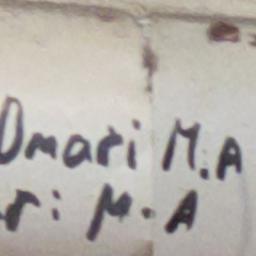 Omari M.A
r: M. A